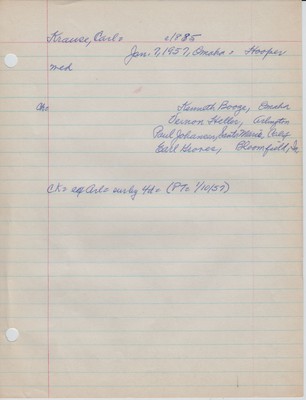 Krause, Carl= c1885
Jan. 7, 1957, Omaha = Hooper
med
Ch= Kenneth Booze, Omaha
Vernon Heller, Arlington
Paul Johansen, Santa Maria, Calif
Earl Hroner, Bloomfield, Ia
CK= Carl= surv by 4d= (PT= 1/10/57)